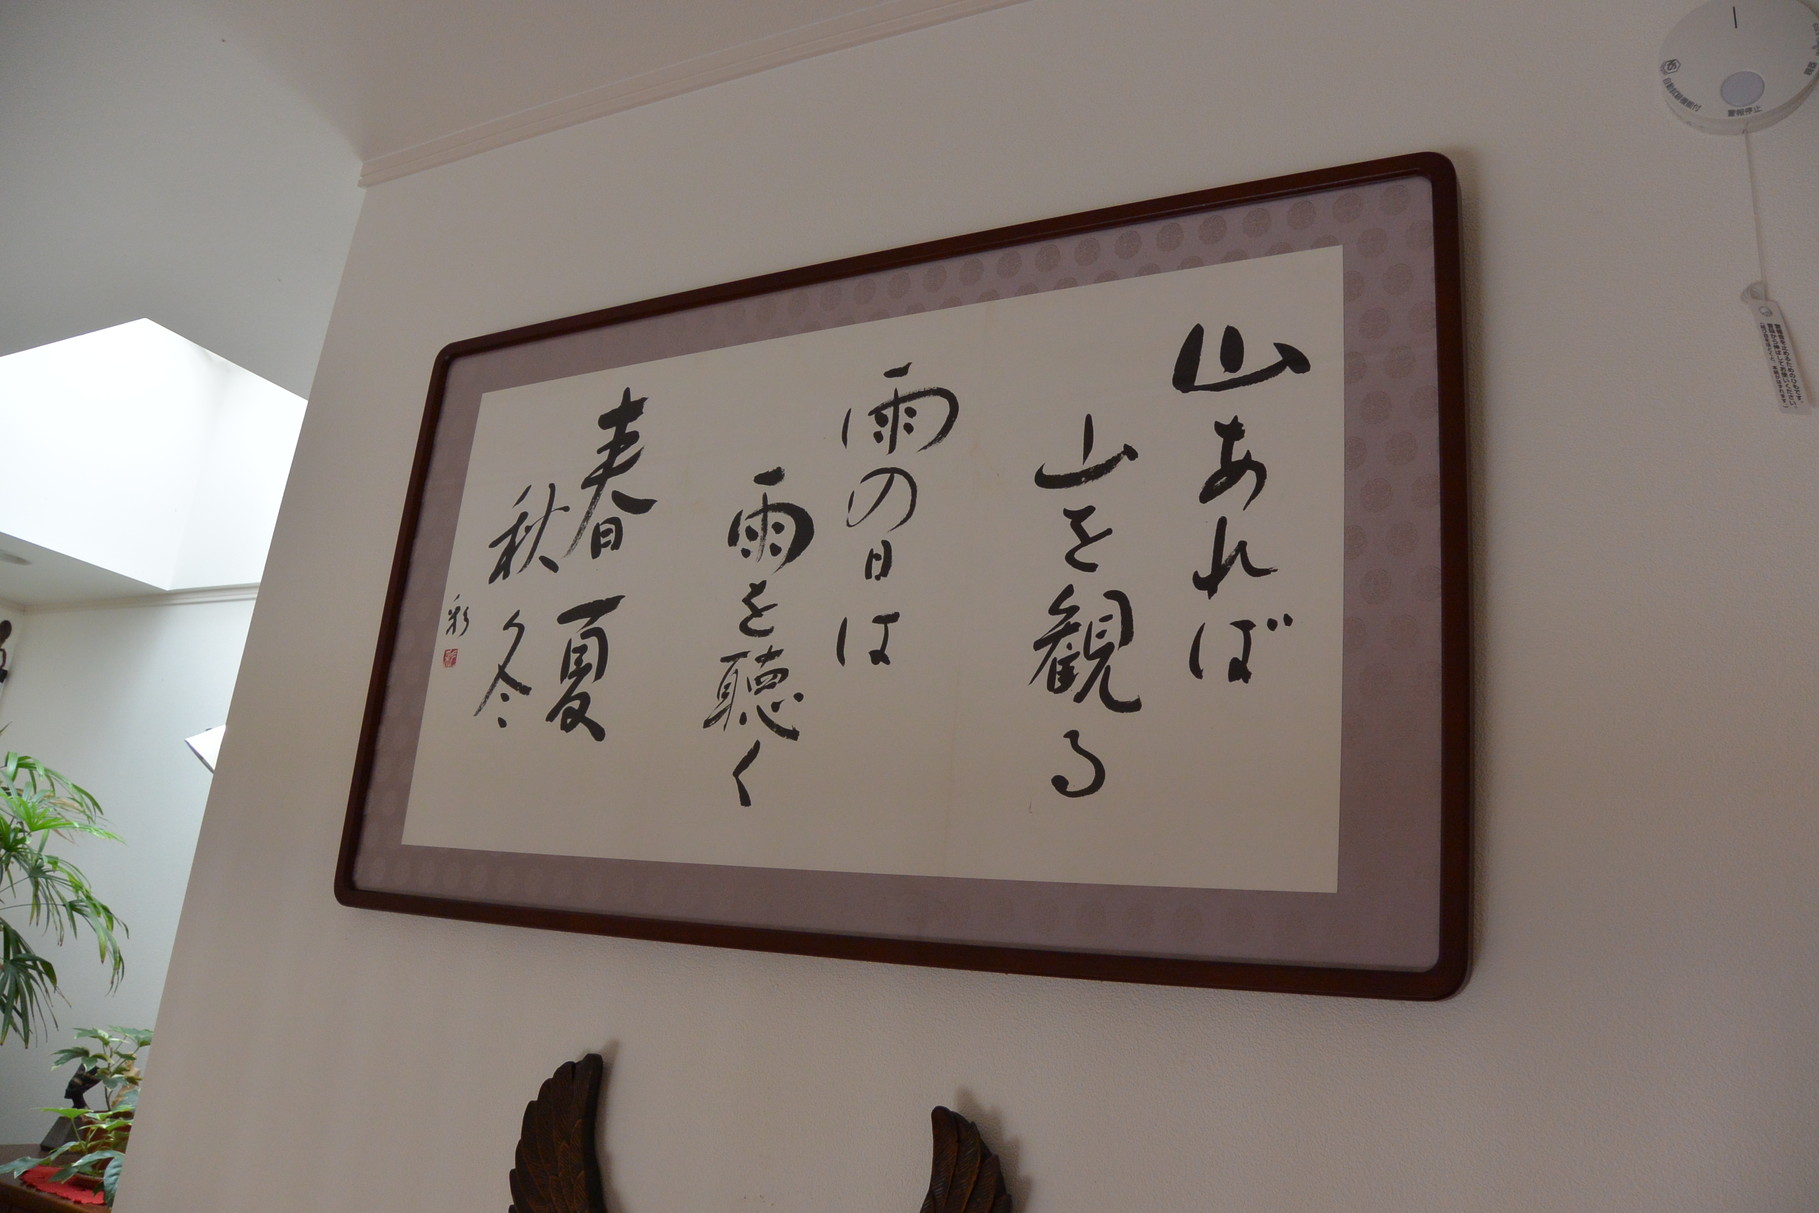 山あれば
山を観る
雨の日は
雨を聴く
春夏
秋冬
彩
警報停止